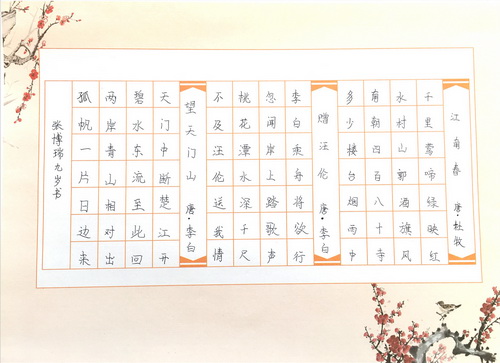 江南春 唐·杜牧
千里莺啼绿映红
水村山郭酒旗风
南朝四百八十寺
多少楼台烟雨中
赠汪伦 唐·李白
李白乘舟将欲行
忽闻岸上踏歌声
桃花潭水深千尺
不及汪伦送我情
望天门山 唐·李白
天门中断楚江开
碧水东流至此回
两岸青山相对出
孤帆一片日边来
张博瑞九岁书